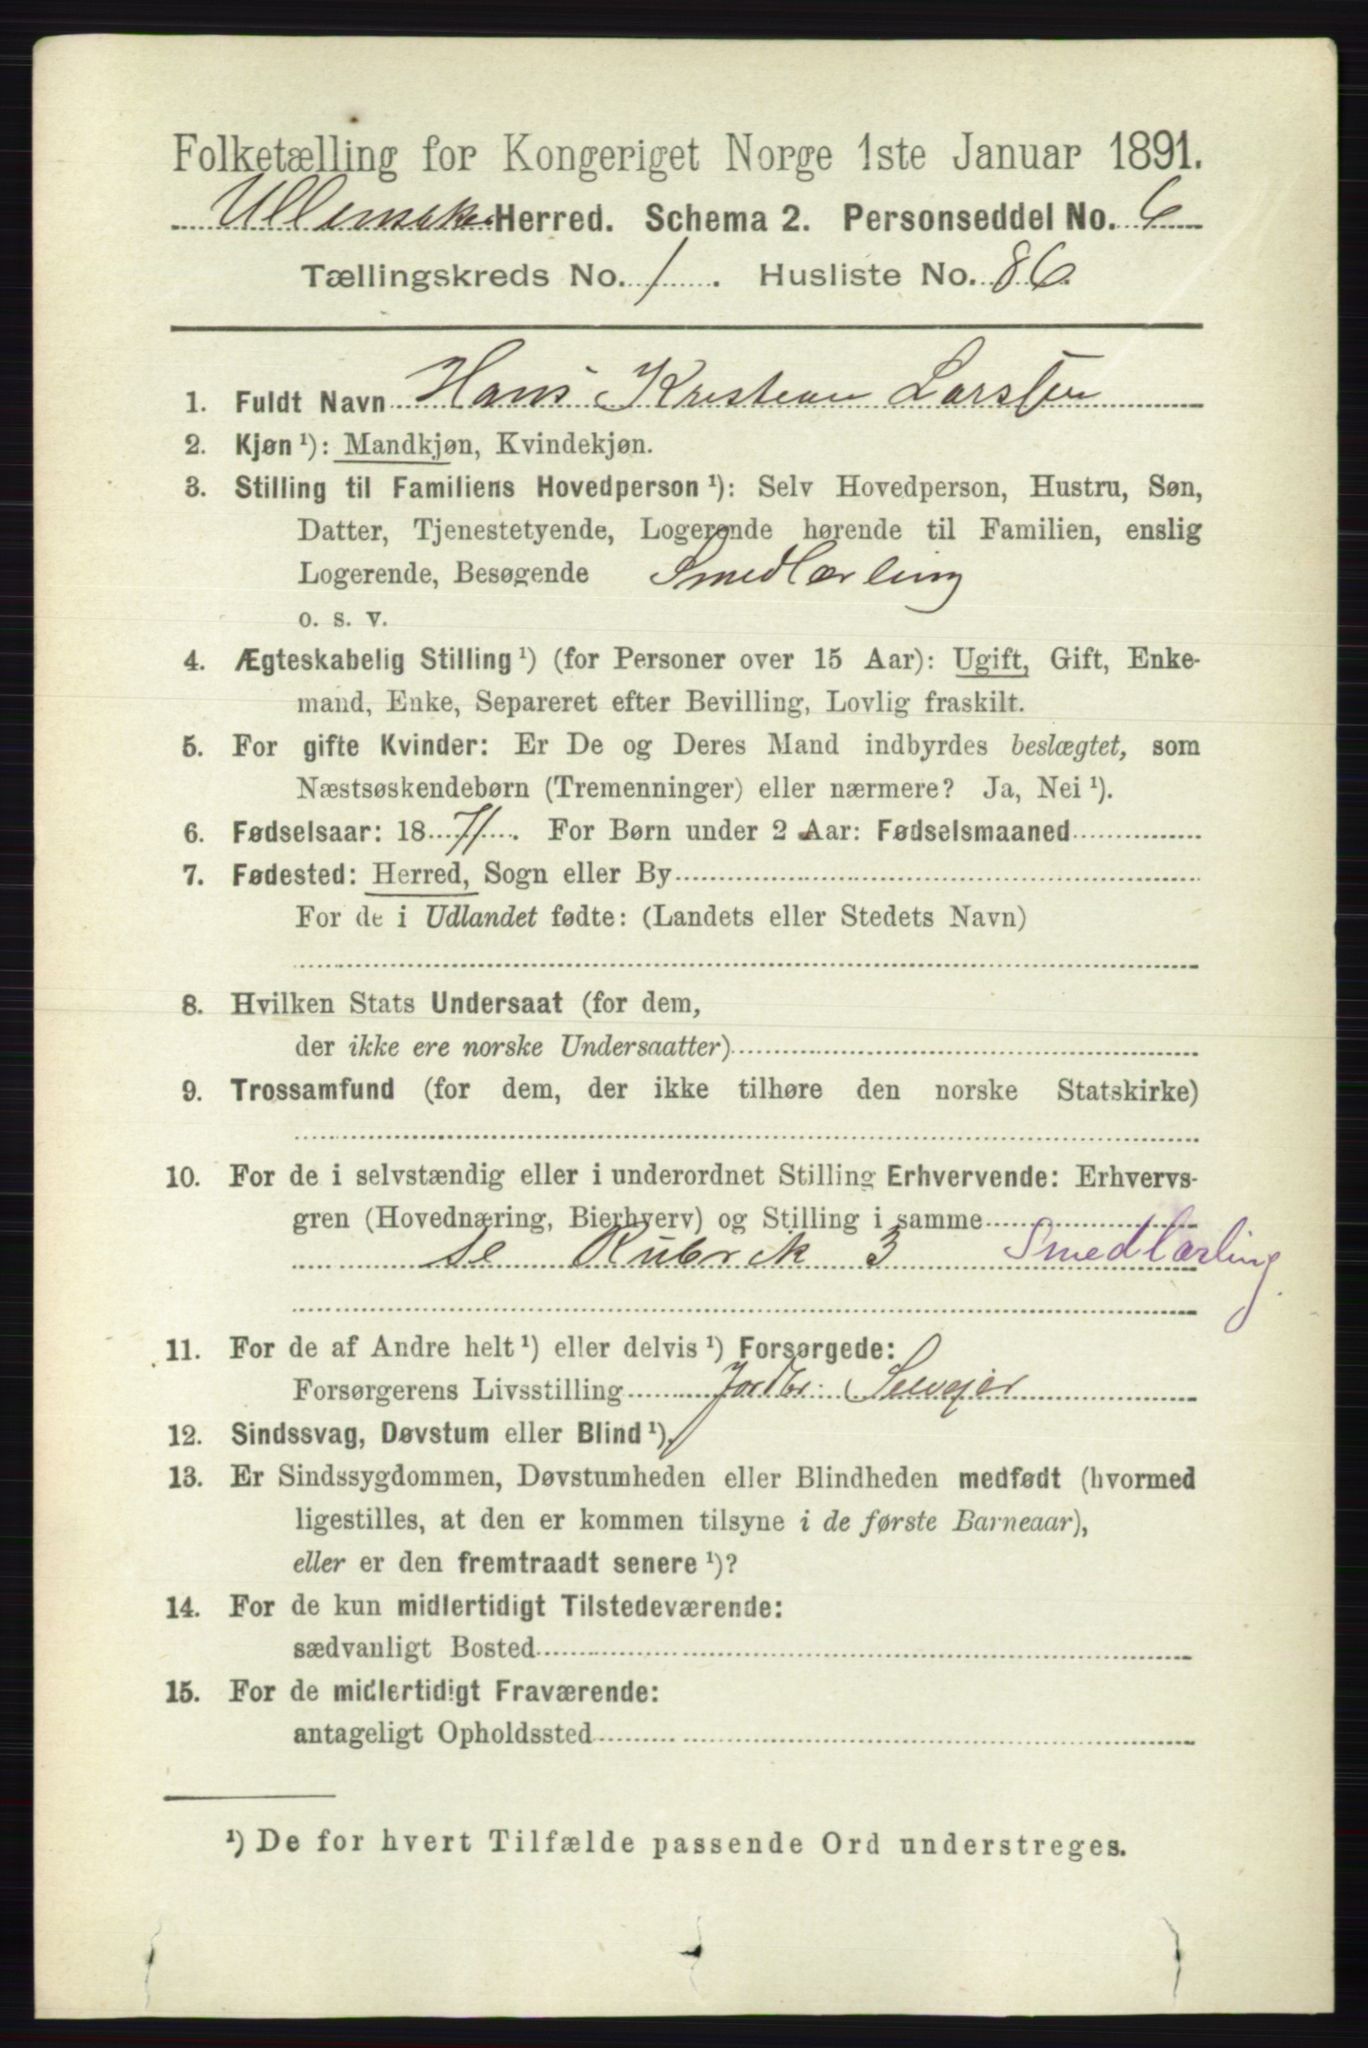 Folketælling for Kongeriget Norge 1ste Januar 1891.
Ullensaker Herred. Schema 2. Personseddel No. 6
Tællingskreds No. 1. Husliste No. 86.
1. Fuldt Navn Hans Kristian Larsen
2. Kjøn ¹): Mandkjøn, Kvindekjøn.
3. Stilling til Familiens Hovedperson ¹): Selv Hovedperson, Hustru, Søn,
Datter, Tjenestetyende, Logerende hørende til Familien, enslig
Logerende, Besøgende Smedlærling
o. s. v.
4. Ægteskabelig Stilling ¹) (for Personer over 15 Aar): Ugift, Gift, Enke-
mand, Enke, Separeret efter Bevilling, Lovlig fraskilt.
5. For gifte Kvinder: Er De og Deres Mand indbyrdes beslægtet, som
Næstsøskendebørn (Tremenninger) eller nærmere? Ja, Nei ¹).
6. Fødselsaar: 1871. For Børn under 2 Aar: Fødselsmaaned
7. Fødested: Herred, Sogn eller By
For de i Udlandet fødte: (Landets eller Stedets Navn)
8. Hvilken Stats Undersaat (for dem,
der ikke ere norske Undersaatter)
9. Trossamfund (for dem, der ikke tilhøre den norske Statskirke)
10. For de i selvstændig eller i underordnet Stilling Erhvervende: Erhvervs-
gren (Hovednæring, Bierhverv) og Stilling i samme
se Rubrik 3 Smedlærling
11. For de af Andre helt ¹) eller delvis ¹) Forsørgede:
Forsørgerens Livsstilling Jordbr. Selveier
12. Sindssvag, Døvstum eller Blind ¹).
13. Er Sindssygdommen, Døvstumheden eller Blindheden medfødt (hvormed
ligestilles, at den er kommen tilsyne i de første Barneaar),
eller er den fremtraadt senere ¹)?
14. For de kun midlertidigt Tilstedeværende:
sædvanligt Bosted
15. For de midlertidigt Fraværende:
antageligt Opholdssted
¹) De for hvert Tilfælde passende Ord understreges.